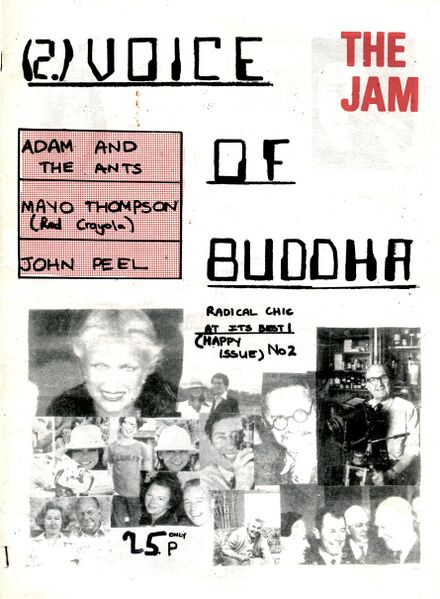 (2.) VOICE
OF
BUDDHA
THE
JAM
ADAM AND
THE ANTS
MAYO THOMPSON
(Red Crayola)
JOHN PEEL
RADICAL CHIC
AT ITS BEST!
(HAPPY
ISSUE) No2
25 ONLY
P